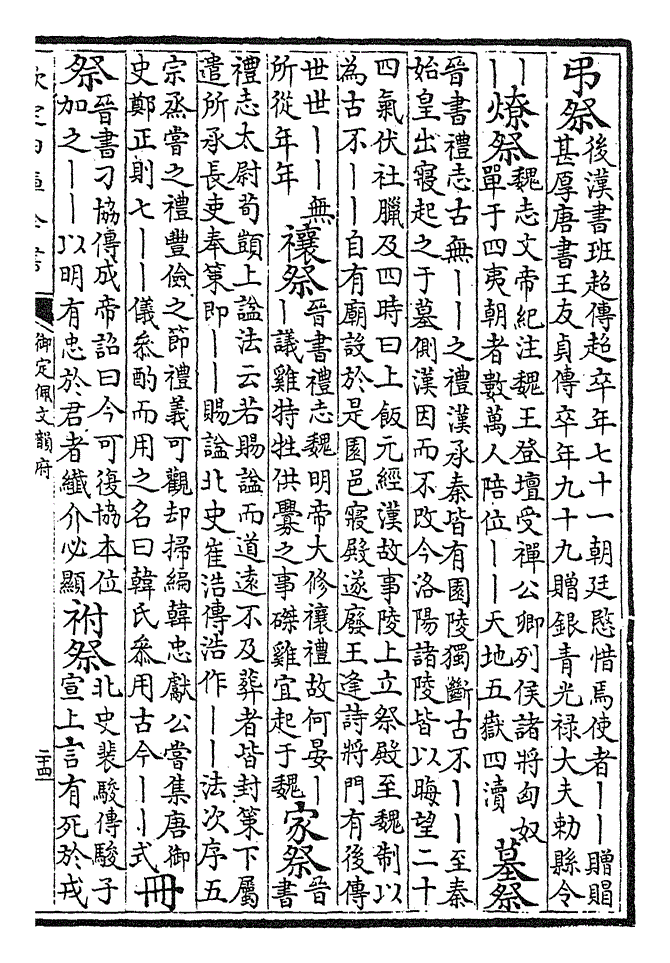 弔祭後漢書班超傳超卒年七十一朝廷愍惜焉使者丨丨贈賵
甚厚唐書王友貞傳卒年九十九贈銀青光祿大夫勅縣令
丨丨燎祭魏志文帝紀注魏王登壇受禪公卿列侯諸將匈奴
單于四夷朝者數萬人陪位丨丨天地五嶽四瀆墓祭
晉書禮志古無丨丨之禮漢承秦皆有園陵獨斷古不丨丨至秦
始皇出寢起之于墓側漢因而不改今洛陽諸陵皆以晦望二十
四氣伏社臘及四時日上飯元經漢故事陵上立祭殿至魏制以
為古不丨丨自有廟設於是園邑寢殿遂廢王逢詩將門有後傳
世世丨丨無
所從年年禳祭晉書禮志魏明帝大修禳禮故何晏丨
丨議雞特牲供釁之事磔雞宜起于魏家祭晉書
禮志太尉荀顗上謚法云若賜謚而道遠不及葬者皆封策下屬
遣所承長吏奉策即丨丨賜謚北史崔浩傳浩作丨丨法次序五
宗烝嘗之禮豐儉之節禮義可觀却掃編韓忠獻公嘗集唐御
史鄭正則七丨丨儀叅酌而用之名曰韓氏叅用古今丨丨式冊
祭晉書刁協傳成帝詔曰今可復協本位
加之丨丨以明有忠於君者纖介必顯祔祭北史裴駿傳駿子
宣上言有死於戎
欽定四庫全書
御定佩文韻府
二十四